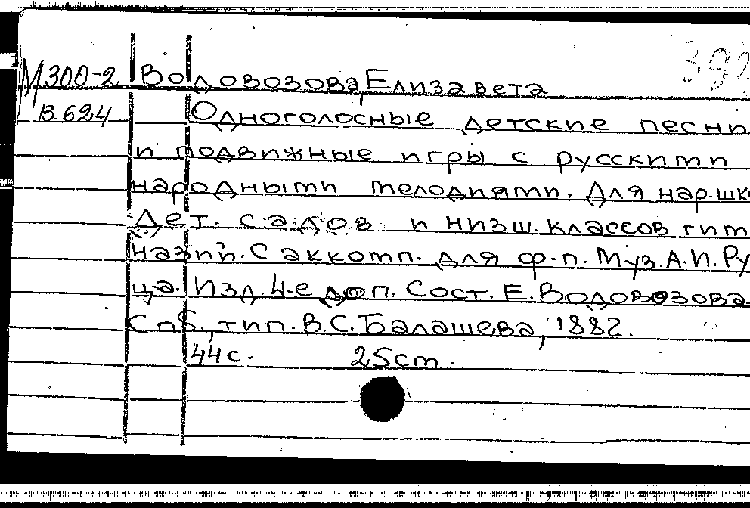 392
М300-2 Водовозова, Елизавета
В624 Одноголосные детские песни
и подвижные игры с русскими
народными мелодиями. Для нар. шк
дет. садов и низш. классов гим
назий. С аккомп. для ф-п. Муз. А.И. Ру
ца. Изд. 4-е доп. Сост. Е. Водовозова
Спб., тип. В.С. Балашева, 1882.
44 с. 25 cm.